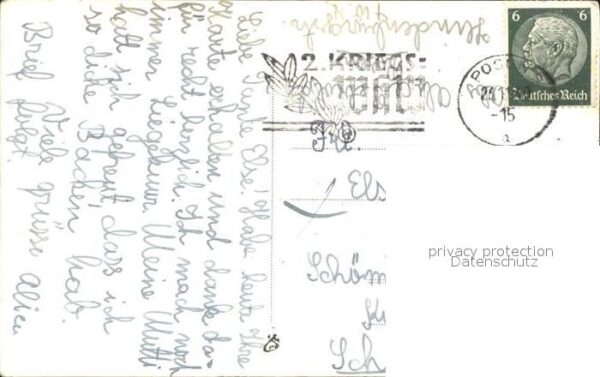 Liebe Tante Else! Habe heute Ihre
Karte erhalten und danke da-
für recht herzlich. Ich mach noch
immer Liegekur. Meine Mutti
hatt sich gefreut dass ich
so dicke Backen hab.
Viele grüsse
Brief folgt.
Hindenburgstr
2. KRIEGS-
WHW
POS
-15
a
6
6
Deutsches Reich
Frl.
Els
Schöm
Kr
Sch
privacy protection
Datenschutz